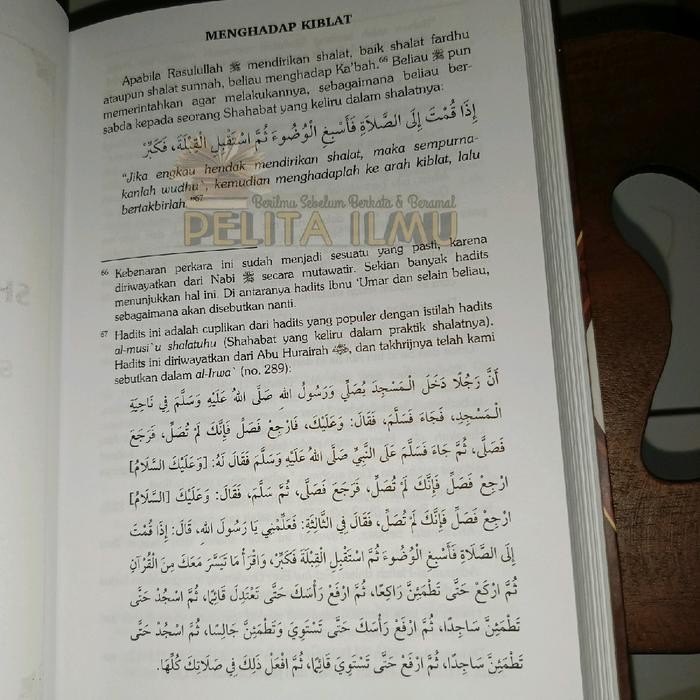 MENGHADAP KIBLAT
Apabila Rasulullah ﷺ mendirikan shalat, baik shalat fardhu
ataupun shalat sunnah, beliau menghadap Ka'bah.⁶⁶ Beliau ﷺ pun
memerintahkan agar melakukannya, sebagaimana beliau ber-
sabda kepada seorang Shahabat yang keliru dalam shalatnya:
إِذَا قُمْتَ إِلَى الصَّلَاةِ فَأَسْبِغِ الْوُضُوءَ ثُمَّ اسْتَقْبِلِ الْقِبْلَةَ، فَكَبِّرْ
"Jika engkau hendak mendirikan shalat, maka sempurna-
kanlah wudhu', kemudian menghadaplah ke arah kiblat, lalu
bertakbirlah."⁶⁷
Berilmu Sebelum Berkata & Beramal
PELITA ILMU
⁶⁶ Kebenaran perkara ini sudah menjadi sesuatu yang pasti, karena
diriwayatkan dari Nabi ﷺ secara mutawatir. Sekian banyak hadits
menunjukkan hal ini. Di antaranya hadits Ibnu 'Umar dan selain beliau,
sebagaimana akan disebutkan nanti.
⁶⁷ Hadits ini adalah cuplikan dari hadits yang populer dengan istilah hadits
al-musi`u shalatuhu (Shahabat yang keliru dalam praktik shalatnya).
Hadits ini diriwayatkan dari Abu Hurairah, dan takhrijnya telah kami
sebutkan dalam al-Irwa` (no. 289):
أَنَّ رَجُلًا دَخَلَ الْمَسْجِدَ يُصَلِّي وَرَسُولُ اللهِ صَلَّى اللهُ عَلَيْهِ وَسَلَّمَ فِي نَاحِيَةِ
الْمَسْجِدِ، فَجَاءَ فَسَلَّمَ، فَقَالَ: وَعَلَيْكَ، فَارْجِعْ فَصَلِّ فَإِنَّكَ لَمْ تُصَلِّ، فَرَجَعَ
فَصَلَّى، ثُمَّ جَاءَ فَسَلَّمَ عَلَى النَّبِيِّ صَلَّى اللهُ عَلَيْهِ وَسَلَّمَ فَقَالَ لَهُ: [وَعَلَيْكَ السَّلَامُ]
ارْجِعْ فَصَلِّ فَإِنَّكَ لَمْ تُصَلِّ، فَرَجَعَ فَصَلَّى، ثُمَّ سَلَّمَ، فَقَالَ: وَعَلَيْكَ [السَّلَامُ]
ارْجِعْ فَصَلِّ فَإِنَّكَ لَمْ تُصَلِّ، فَقَالَ فِي الثَّالِثَةِ: فَعَلِّمْنِي يَا رَسُولَ اللهِ، قَالَ: إِذَا قُمْتَ
إِلَى الصَّلَاةِ فَأَسْبِغِ الْوُضُوءَ ثُمَّ اسْتَقْبِلِ الْقِبْلَةَ فَكَبِّرْ، وَاقْرَأْ مَا تَيَسَّرَ مَعَكَ مِنَ الْقُرْآنِ
ثُمَّ ارْكَعْ حَتَّى تَطْمَئِنَّ رَاكِعًا، ثُمَّ ارْفَعْ رَأْسَكَ حَتَّى تَعْتَدِلَ قَائِمًا، ثُمَّ اسْجُدْ حَتَّى
تَطْمَئِنَّ سَاجِدًا، ثُمَّ ارْفَعْ رَأْسَكَ حَتَّى تَسْتَوِيَ وَتَطْمَئِنَّ جَالِسًا، ثُمَّ اسْجُدْ حَتَّى
تَطْمَئِنَّ سَاجِدًا، ثُمَّ ارْفَعْ حَتَّى تَسْتَوِيَ قَائِمًا، ثُمَّ افْعَلْ ذَلِكَ فِي صَلَاتِكَ كُلِّهَا.